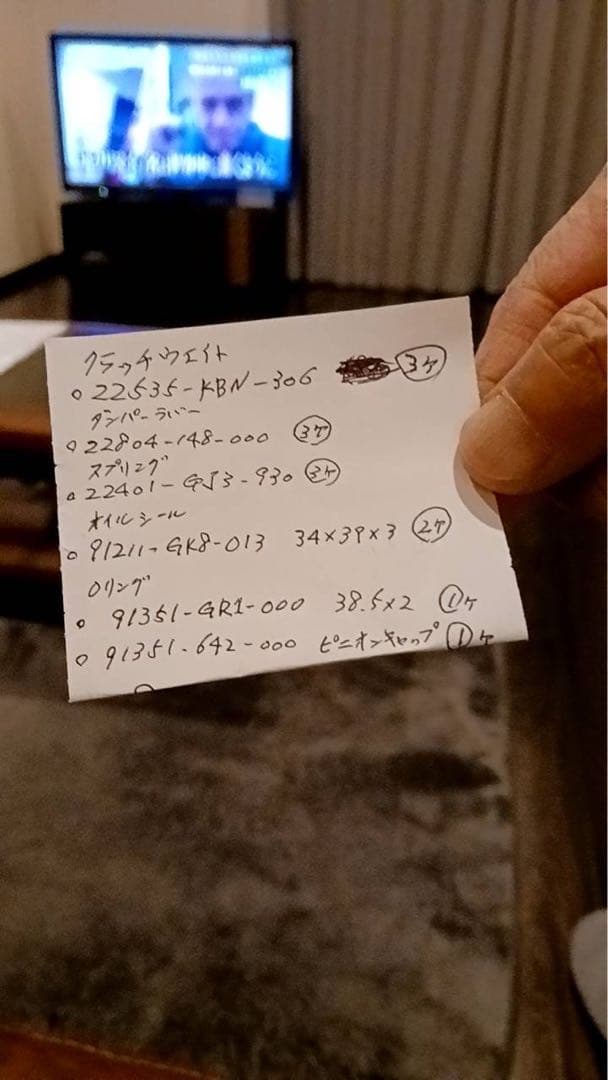 クラッチウエイト
○ 22535-KBN-306 3ケ
ダンパーラバー
○ 22804-148-000 3ケ
スプリング
○ 22401-GJ3-930 3ケ
オイルシール
○ 91211-GK8-013 34×39×3 2ケ
Oリング
○ 91351-GR1-000 38.5×2 1ケ
○ 91351-642-000 ピニオンキャップ 1ケ